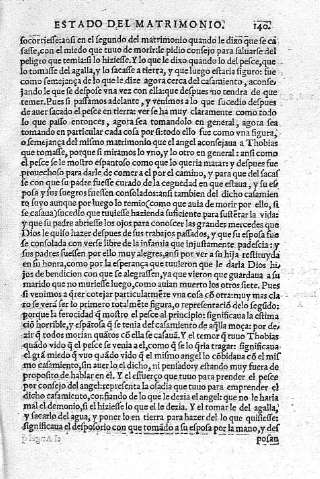 ESTADO DEL MATRIMONIO. 140.
socorriesse: ansi en el segundo del matrimonio quando le dixo que se ca
sasse, con el miedo que tuuo de morirse pidio consejo para saluarse del
peligro que temia si lo hiziesse. Y lo que le dixo quando lo del pesce, que
lo tomasse del agalla, y lo sacasse a tierra, y que luego estaria siguro: fue
como semejança de lo que le dize agora cerca del casamiento, aconse-
jando le que se despose vna vez con ella: que despues no tendra de que
temer. Pues si passamos adelante, y venimos a lo que sucedio despues
de auer sacado el pesce en tierra: verse ha muy claramente como todo
lo que passo entonces, agora sea tomandolo en general, agora sea
tomando en particular cada cosa por si: todo ello fue como vna figura,
o semejança del mismo matrimonio que el angel aconsejaua a Thobias
que tomasse, porque si miramos lo vno, y lo otro en general: ansi como
el pesce se le mostro espantoso como que lo queria matar: y despues fue
prouechoso para darle de comer a el por el camino, y para que del sacas
se con que su padre fuesse curado de la ceguedad en que estaua, y su es
posa y sus suegros fuessen consolados: ansi tambien del dicho casamien
to suyo aunque por luego lo temio (como que auia de morir por ello, si
se casaua) sucedio que tuuiesse hazienda suficiente para sustẽtar la vida:
y que su padre abriesse los ojos para conocer las grandes mercedes que
Dios le quiso hazer despues de sus trabajos passados, y que su esposa fue
se consolada con verse libre de la infamia que injustamente padescia: y
sus padres fuessen por ello muy alegres, ansi por ver a su hija restituyda
en su honra, como por la esperança que tuuieron que le daria Dios hi-
jos de bendicion con que se alegrassen, ya que vieron que guardaua a su
marido que no muriesse luego, como auian muerto los otros siete. Pues
si venimos a q̃rer cotejar particularmẽte vna cosa cõ otra: muy mas cla
ro se verá ser lo primero totalmẽte figura, o representaciõ de lo segũdo:
porque la ferocidad q̃ mostro el pesce al principio: significaua la estima
ciõ horrible, y espãtosa q̃ se tenia del casamiento de aq̃lla moça: por de-
zir q̃ todos moriã quãtos cõ ella se casauã. Y el temor q̃ tuuo Thobias
quãdo vido q̃ el pesce se venia a el, como q̃ se lo q̃ria tragar: significaua
el grã miedo q̃ vuo quãdo vido q̃ el mismo angel lo cõbidaua cõ el mis
mo casamiento, sin auer lo el dicho, ni pensado: y estando muy fuera de
proposito de hablar en el. Y el esfuerço que tuuo para prender el pesce
por consejo del angel: representa la osadia que tuuo para emprender el
dicho casamiento, confiando de lo que le dezia el angel: que no le haria
mal el demonio, si el hiziesse lo que el le dezia. Y el tomar le del agalla,
y sacarlo del agua, y poner lo en tierra para hazer del lo que quisiesse:
significaua el desposorio con que tomãdo a su esposa por la mano, y des
posan